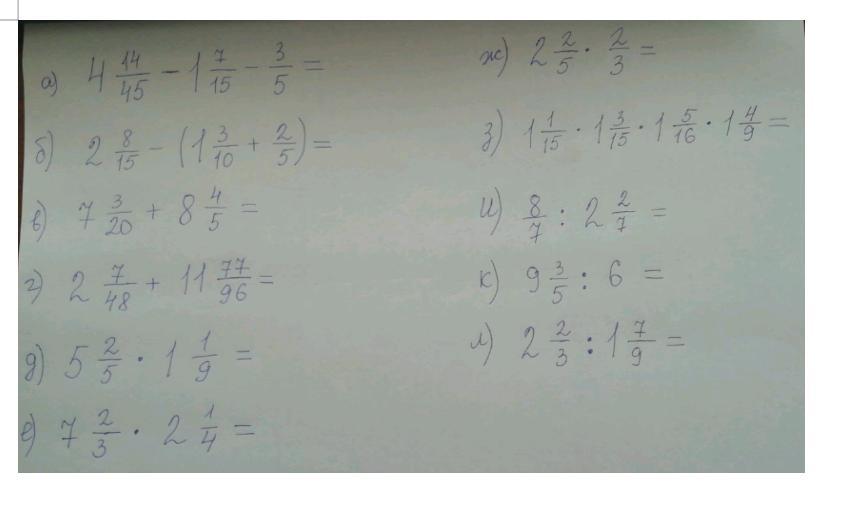 а) 4 14/45 - 1 7/15 - 3/5 =
б) 2 8/15 - (1 3/10 + 2/5) =
в) 7 3/20 + 8 4/5 =
г) 2 7/48 + 11 77/96 =
д) 5 2/5 · 1 1/9 =
е) 7 2/3 · 2 1/4 =
ж) 2 2/5 · 2/3 =
з) 1 1/15 · 1 3/15 · 1 5/16 · 1 4/9 =
и) 8/7 : 2 2/7 =
к) 9 3/5 : 6 =
л) 2 2/3 : 1 7/9 =